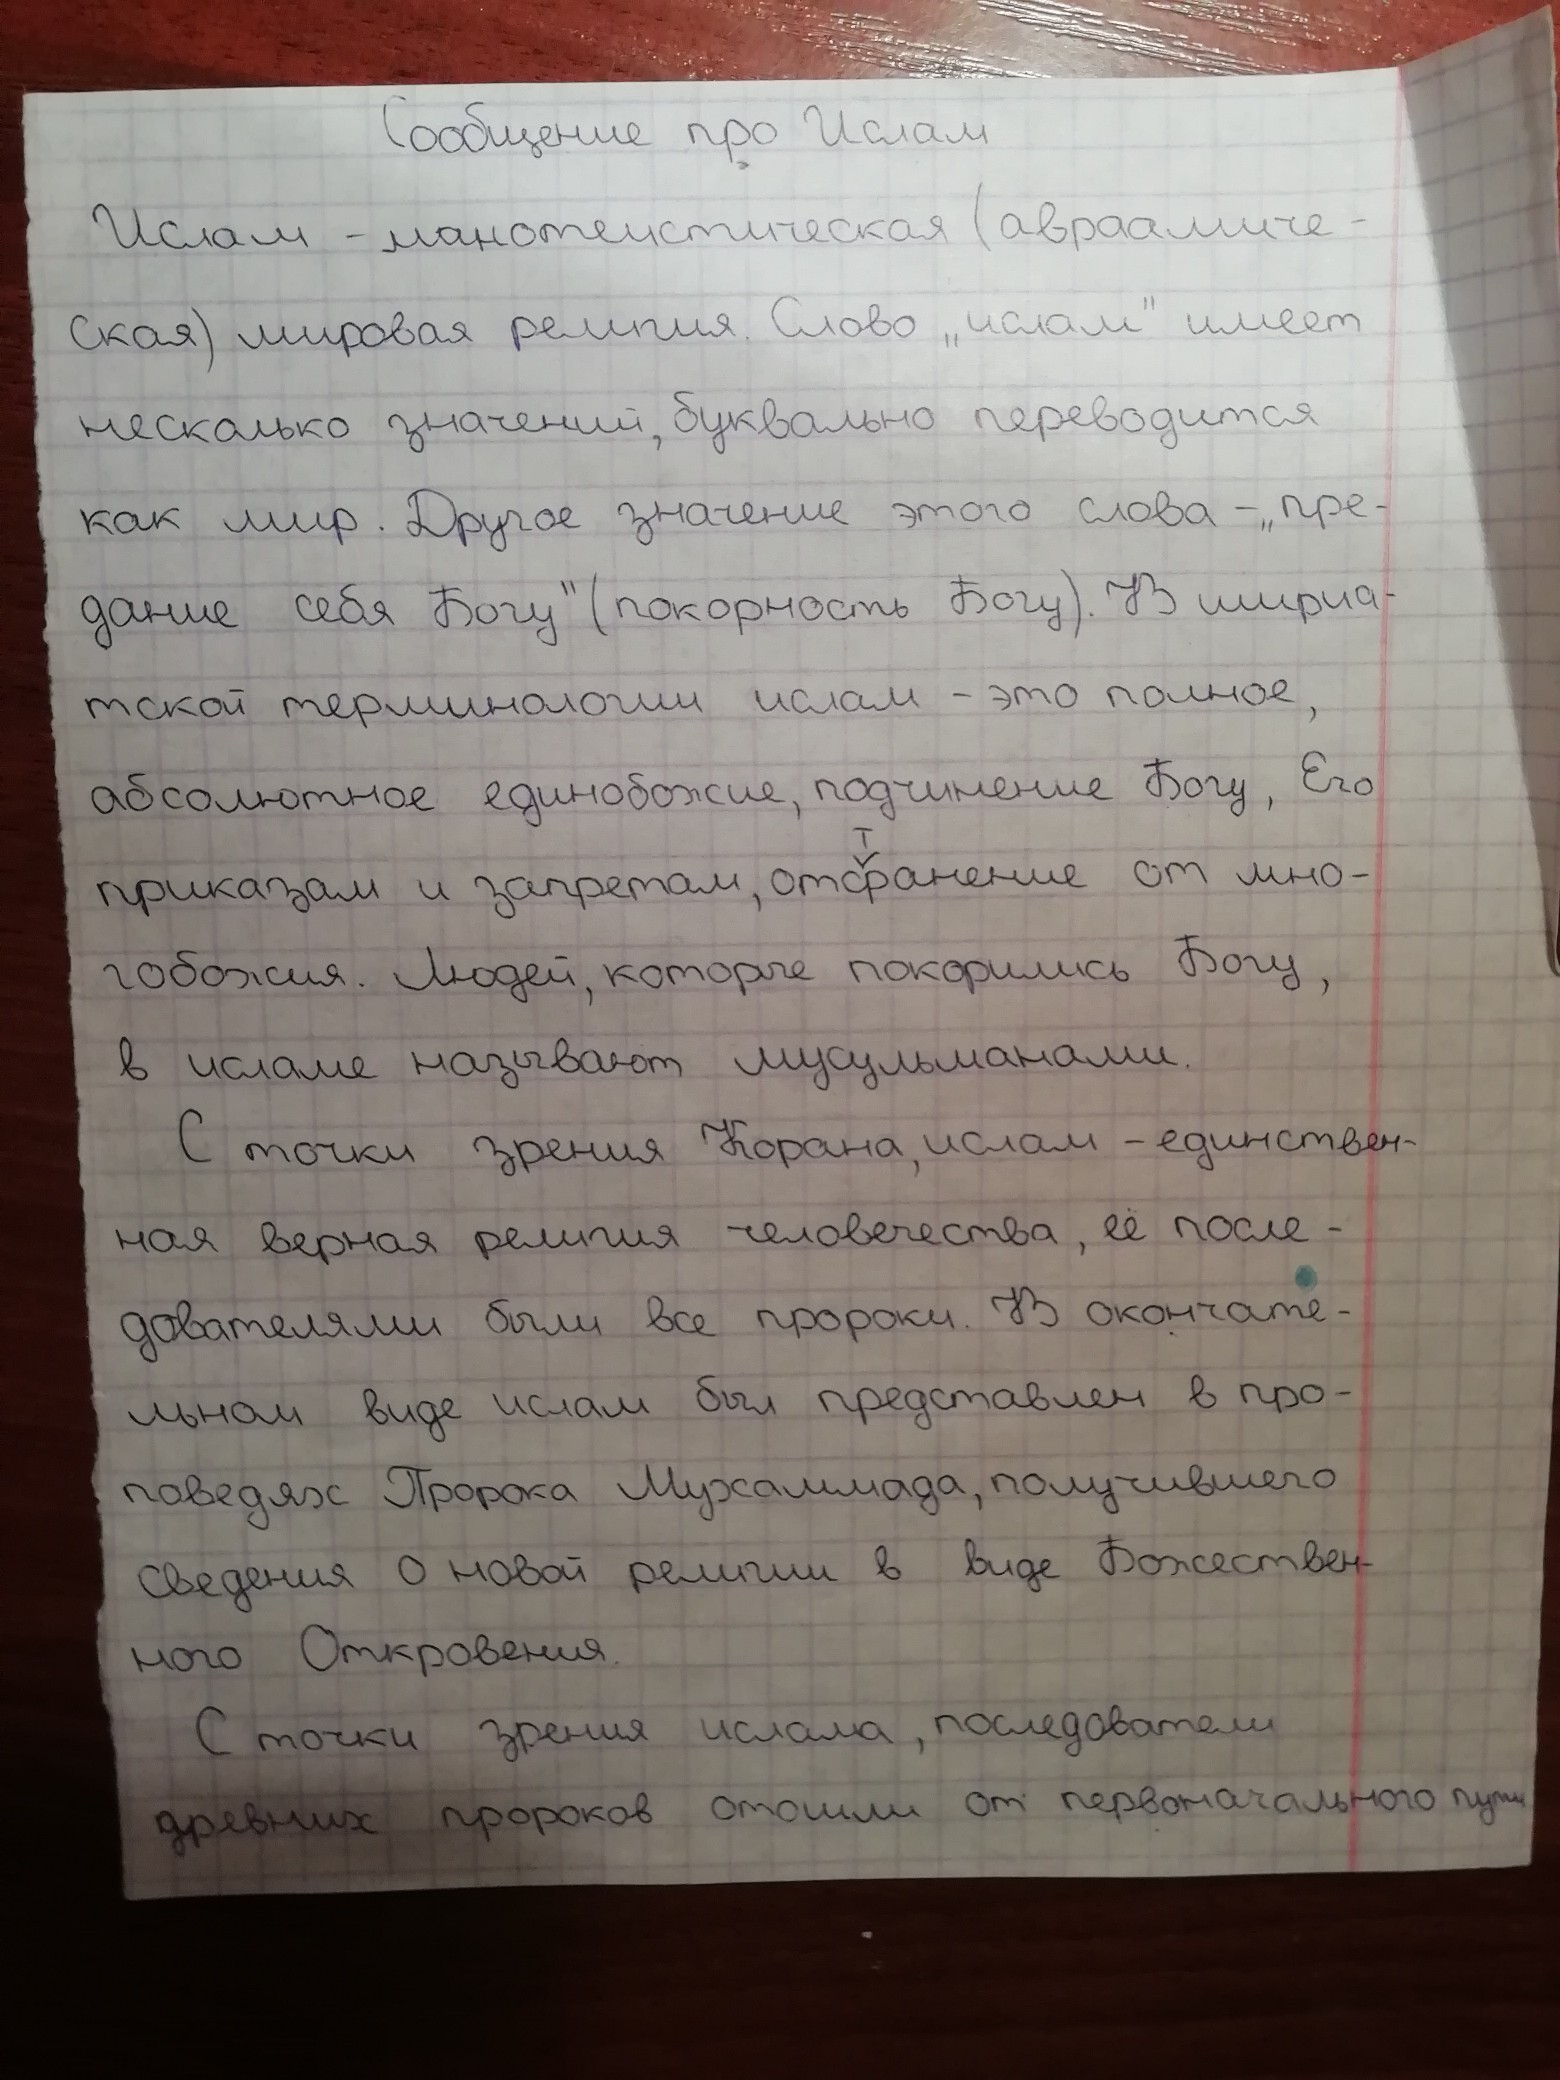 Сообщение про Ислам
Ислам - манотеистическая (авраамиче-
ская) мировая религия. Слово „ислам" имеет
несколько значений, буквально переводится
как мир. Другое значение этого слова - „пре-
дание себя Богу" (покорность Богу). В шириа-
тской терминологии ислам - это полное,
абсолютное единобожие, подчинение Богу, Его
приказам и запретам, отстранение от мно-
гобожия. Людей, которые покорились Богу,
в исламе называют мусульманами.
С точки зрения Корана, ислам - единствен-
ная верная религия человечества, её после-
дователями были все пророки. В окончате-
льном виде ислам был представлен в про-
поведях Пророка Мухаммада, получившего
сведения о новой религии в виде Божествен-
ного Откровения.
С точки зрения ислама, последователи
древних пророков отошли от первоначального пути